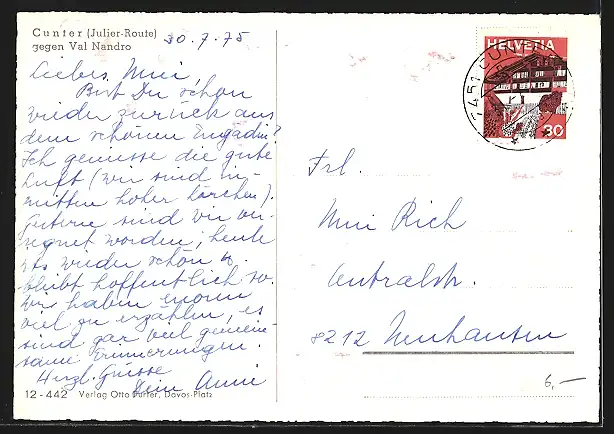 Cunter (Julier-Route)
gegen Val Nandro
30.7.75
Liebes Mini,
Bist Du schon
wieder zurück aus
dem schönen Engadin?
Ich geniesse die gute
Luft (wir sind in-
mitten hoher Lärchen).
Gestern sind wir
worden, heute
ists wieder schön u.
bleibt hoffentlich so.
Wir haben enorm
viel zu erzählen, es
sind gar viel gemein-
same Erinnerungen.
Herzl. Grüsse
Dein Anni
12-442 Verlag Otto Furter, Davos-Platz
HELVETIA
30
1451 CUN
Frl.
Mini Rich
Zentralstr.
8212 Neuhausen
6,—